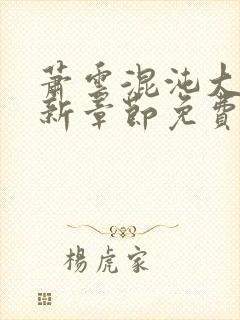 蕭雲混沌大
新章節免費
楊虎家